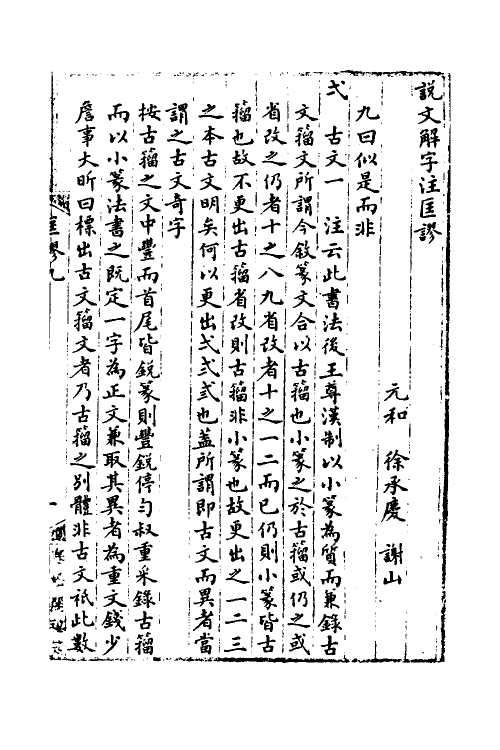 說文解字注匡謬
元和　徐承慶　謝山
九曰似是而非
弌　古文一　注云此書法後王尊漢制以小篆為質而兼錄古
文籀文所謂今敘篆文合以古籀也小篆之於古籀或仍之或
省改之仍者十之八九省改者十之一二而已仍則小篆皆古
籀也故不更出古籀省改則古籀非小篆也故更出之一二三
之本古文明矣何以更出弌弍弎也蓋所謂即古文而異者當
謂之古文奇字
按古籀之文中豐而首尾皆銳篆則豐銳停勻叔重采錄古籀
而以小篆法書之既定一字為正文兼取其異者為重文錢少
詹事大昕曰標出古文籀文者乃古籀之別體非古文衹此數
匡謬九
一